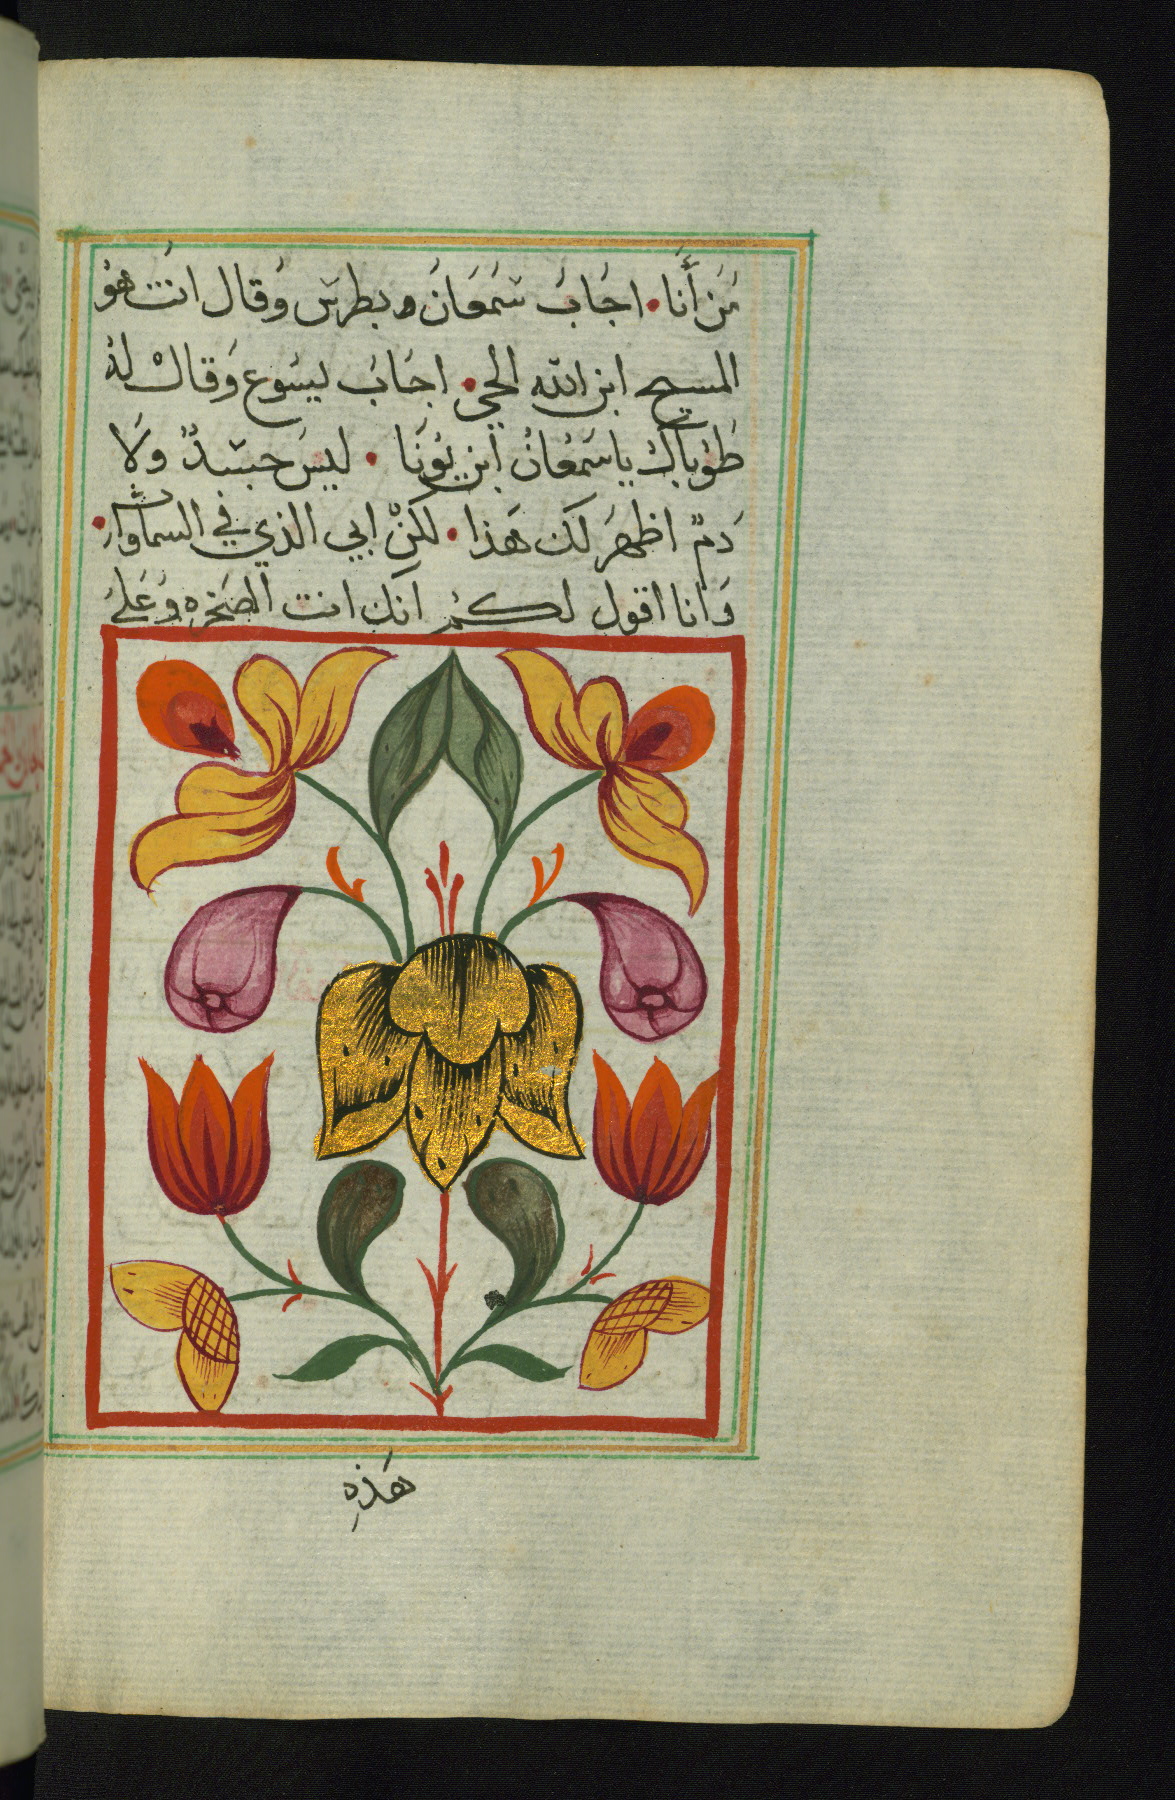 مَن أَنَا • اجَابَ سَمَعَانَ بطرس وَقال انت هوَ
المسيح ابن الله الحي • اجَابَ ليسَوع وَقالْ لهُ
طَوْبَاكْ ياسَمَعَانُ ابن يُونَا • ليسَ جسَدٌ وَلَا
دَمٌ اظهرَ لكَ هَذا • لكنْ ابي الذي في السماوَات •
وَانا اقول لكمُ انكَ انت الصَخره وَعَلىَ
هَذِهِ